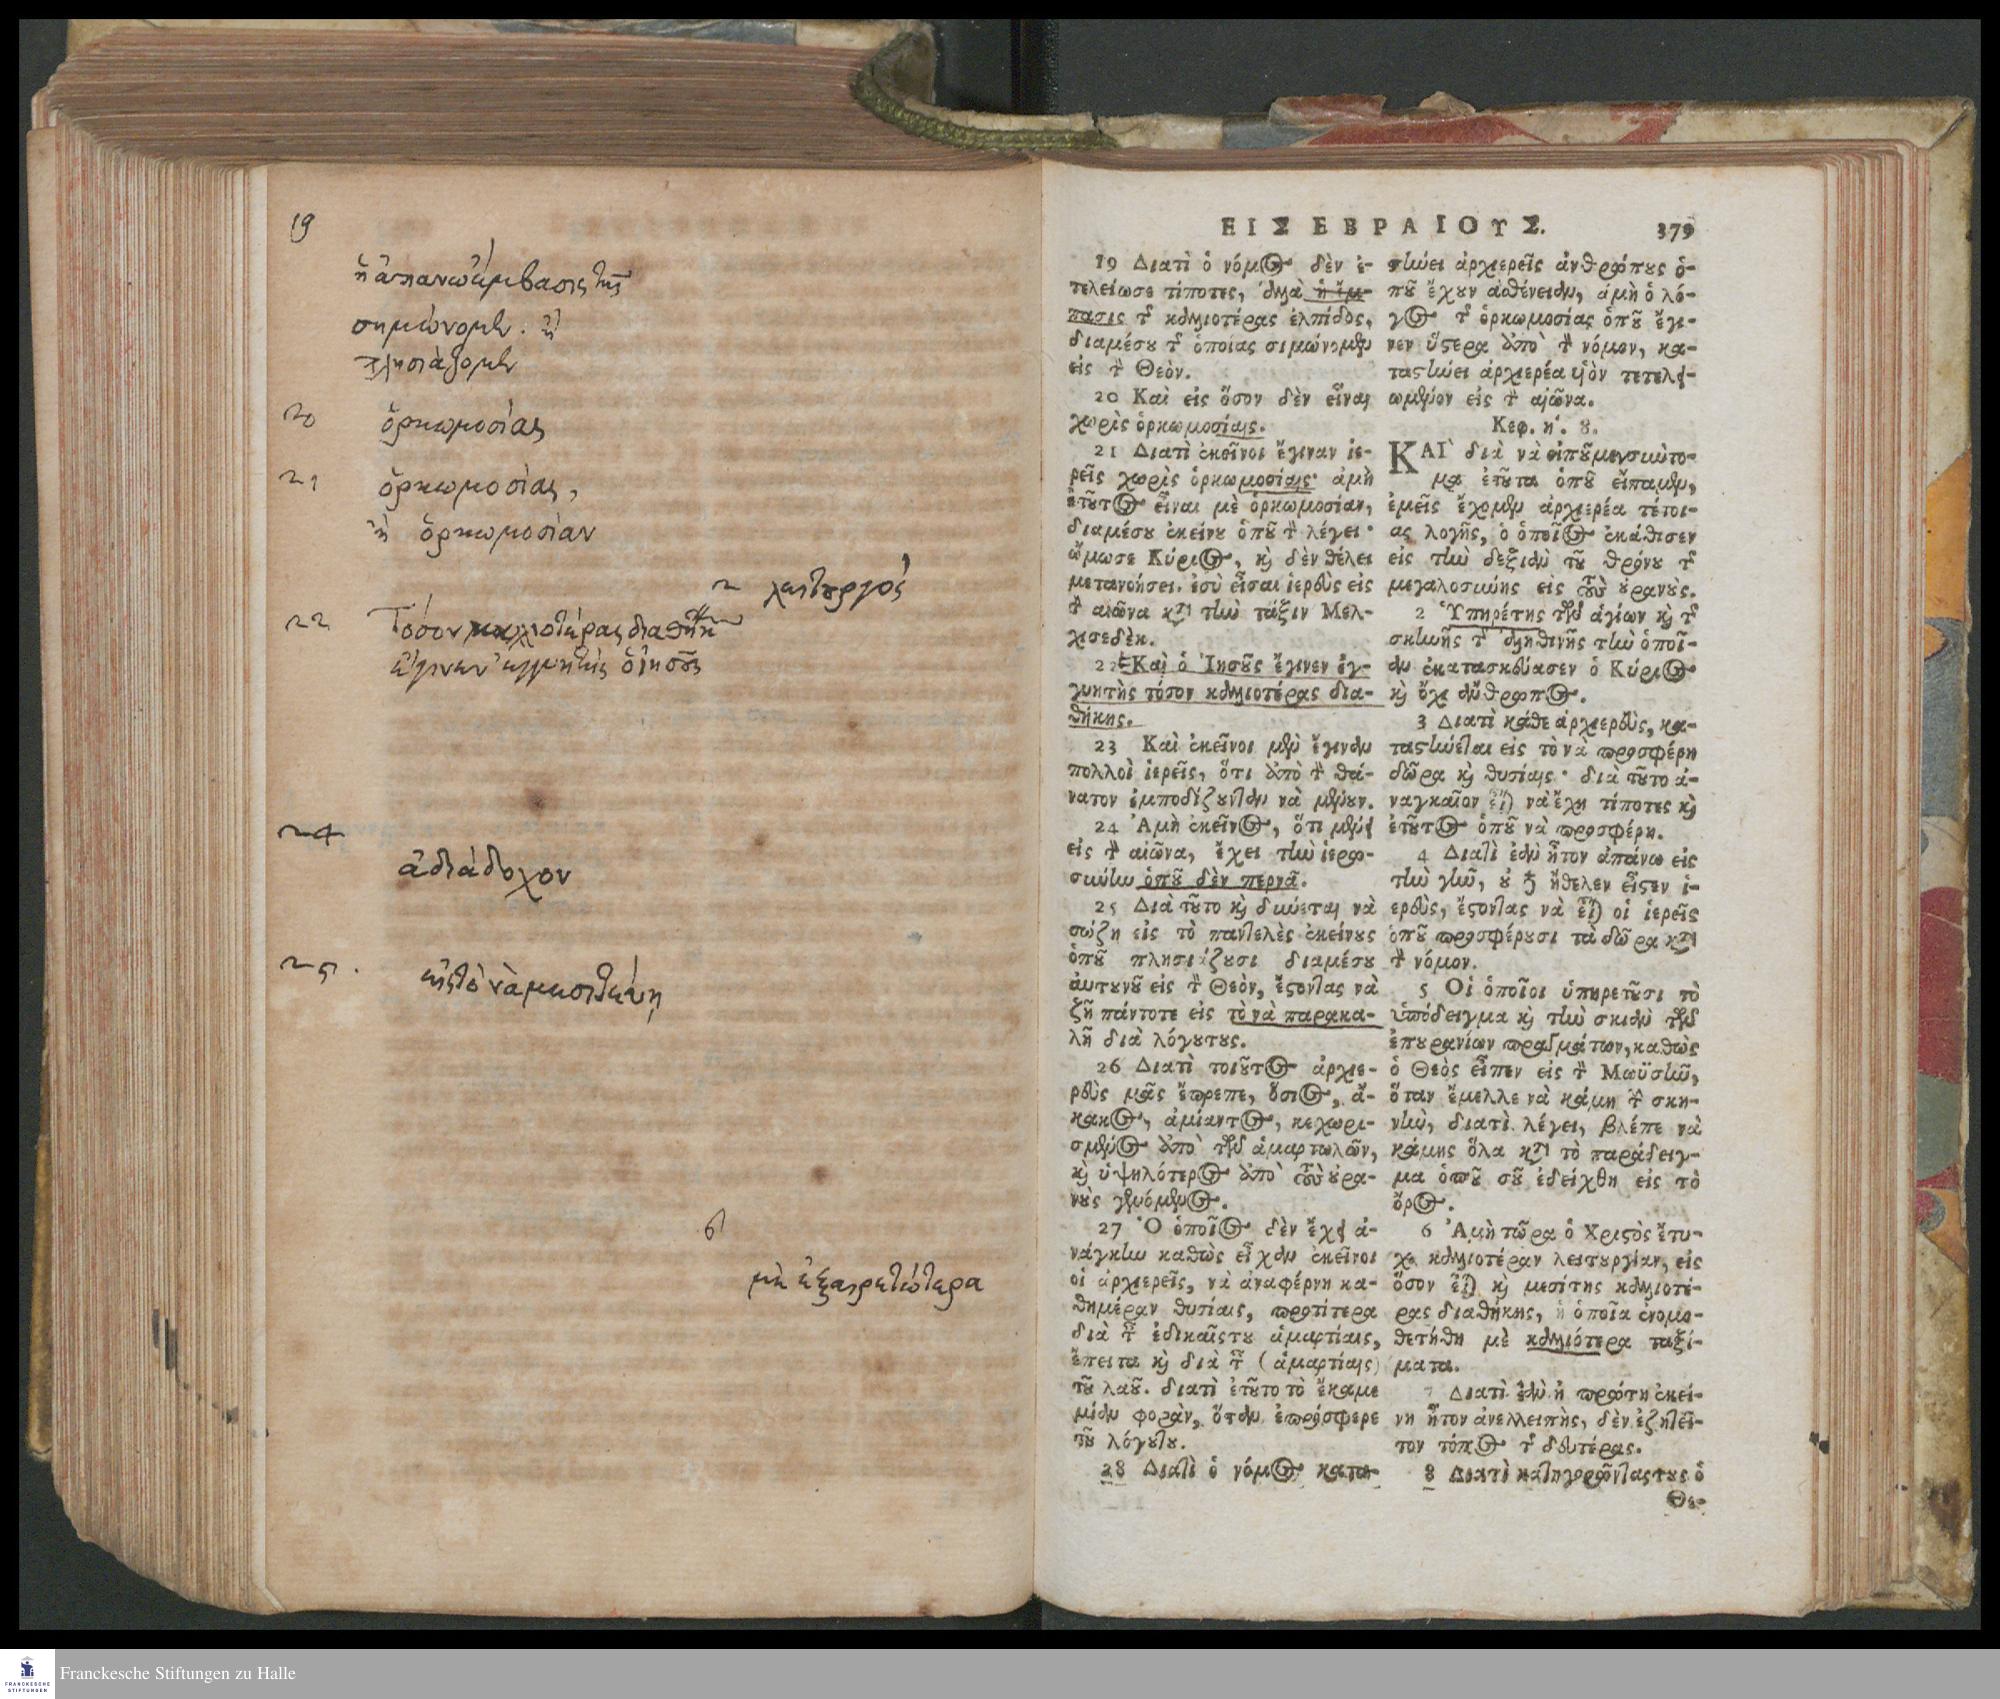 19
ἢ ἀπανωέμβασις τῆς
σημώνομεν. ἢ
πλησιάζομεν
20 ὁρκωμοσίας
21 ὁρκωμοσίας,
ἢ ὁρκωμοσίαν
2 λειτουργὸς
22 Τόσον διαθήκης
ἔγινεν ἐγγυητὴς ὁ ἰησοῦς
24
ἀδιάδοχον
25. εἰς τὸ νὰ μεσιτεύῃ
6
μὲ ἐξαιρετώτερα
ΕΙΣ ΕΒΡΑΙΟΥΣ. 379
19 Διατὶ ὁ νόμος δὲν ἐ-
τελείωσε τίποτες, ἀλλὰ ἡ ἔμ-
πασις τῆς καλλιοτέρας ἐλπίδος,
διαμέσου τῆς ὁποίας σιμώνομεν
εἰς τὸν Θεὸν.
20 Καὶ εἰς ὅσον δὲν εἶναι
χωρὶς ὁρκωμοσίαις.
21 Διατὶ ἐκεῖνοι ἔγιναν ἱε-
ρεῖς χωρὶς ὁρκωμοσίαις· ἀμὴ
ἐτοῦτος εἶναι μὲ ὁρκωμοσίαν,
διαμέσου ἐκείνου ὁποῦ τὸν λέγει·
ὤμωσε Κύριος, καὶ δὲν θέλει
μετανοήσει. ἐσὺ εἶσαι ἱερεὺς εἰς
τὸν αἰῶνα κατὰ τὴν τάξιν Μελ-
χισεδὲκ.
22 Καὶ ὁ Ἰησοῦς ἔγινεν ἐγ-
γυητὴς τόσον καλλιοτέρας δια-
θήκης.
23 Καὶ ἐκεῖνοι μὲν ἔγιναν
πολλοὶ ἱερεῖς, ὅτι ἀπὸ τὸν θά-
νατον ἐμποδίζουνταν νὰ μένουν.
24 Ἀμὴ ἐκεῖνος, ὅτι μένει
εἰς τὸν αἰῶνα, ἔχει τὴν ἱερω-
σύνην ὁποῦ δὲν περνᾶ.
25 Διὰ τοῦτο καὶ δύνεται νὰ
σώζῃ εἰς τὸ παντελὲς ἐκείνους
ὁποῦ πλησιάζουσι διαμέσου
αὐτουνοῦ εἰς τὸν Θεὸν, ἔστοντας νὰ
ζῇ πάντοτε εἰς τὸ νὰ παρακα-
λῇ διὰ λόγουτους.
26 Διατὶ τοιοῦτος ἀρχιε-
ρεὺς μᾶς ἔπρεπε, ὅσιος, ἄ-
κακος, ἀμίαντος, κεχωρι-
σμένος ἀπὸ τῶν ἁμαρτωλῶν,
καὶ ὑψηλότερος ἀπὸ τοὺς οὐρα-
νοὺς γενόμενος.
27 Ὁ ὁποῖος δὲν ἔχει ἀ-
νάγκην καθὼς εἶχαν ἐκεῖνοι
οἱ ἀρχιερεῖς, νὰ ἀναφέρνῃ κα-
θημέραν θυσίαις, προτίτερα
διὰ τῆς ἐδικαῖςτου ἁμαρτίαις,
ἔπειτα καὶ διὰ τῆς (ἁμαρτίαις)
τοῦ λαοῦ. διατὶ ἐτοῦτο τὸ ἔκαμε
μίαν φορὰν, ὅταν ἐπρόσφερε
τοῦ λόγουτου.
28 Διατὶ ὁ νόμος κατα-
στήνει ἀρχιερεῖς ἀνθρώπους ὁ-
ποῦ ἔχουν ἀσθένειαν, ἀμὴ ὁ λό-
γος τῆς ὁρκωμοσίας ὁποῦ ἔγι-
νεν ὕστερα ἀπὸ τὸν νόμον, κα-
ταστήνει ἀρχιερέα υἱὸν τετελει-
ωμένον εἰς τὸν αἰῶνα.
Κεφ. η'. 8.
ΚΑΙ διὰ νὰ εἰποῦμεν σύντο-
μα ἐτοῦτα ὁποῦ εἴπαμεν,
ἐμεῖς ἔχομεν ἀρχιερέα τέτοι-
ας λογῆς, ὁ ὁποῖος ἐκάθισεν
εἰς τὴν δεξιὰν τοῦ θρόνου τῆς
μεγαλοσύνης εἰς τοὺς οὐρανοὺς.
2 Ὑπηρέτης τῶν ἁγίων καὶ τῆς
σκηνῆς τῆς ἀληθινῆς τὴν ὁποῖ-
αν ἐκατασκεύασεν ὁ Κύριος
καὶ ὄχι ἄνθρωπος.
3 Διατὶ κάθε ἀρχιερεὺς, κα-
ταστήνεται εἰς τὸ νὰ προσφέρῃ
δῶρα καὶ θυσίαις· διὰ τοῦτο ἀ-
ναγκαῖον εἶναι νὰ ἔχῃ τίποτες καὶ
ἐτοῦτος ὁποῦ νὰ προσφέρῃ.
4 Διατὶ ἐὰν ἦτον ἀπάνω εἰς
τὴν γῆν, οὐδὲ ἤθελεν εἶστεν ἱ-
ερεὺς, ἔστοντας νὰ εἶναι οἱ ἱερεῖς
ὁποῦ προσφέρουσι τὰ δῶρα κατὰ
τὸν νόμον.
5 Οἱ ὁποῖοι ὑπηρετοῦσι τὸ
ὑπόδειγμα καὶ τὴν σκιὰν τῶν
ἐπουρανίων πραγμάτων, καθὼς
ὁ Θεὸς εἶπεν εἰς τὸν Μωϋσῆν,
ὅταν ἔμελλε νὰ κάμῃ τὴν σκη-
νὴν, διατὶ λέγει, βλέπε νὰ
κάμῃς ὅλα κατὰ τὸ παράδειγ-
μα ὁποῦ σοῦ ἐδείχθη εἰς τὸ
ὄρος.
6 Ἀμὴ τῶρα ὁ Χριστὸς ἔτυ-
χε καλλιοτέραν λειτουργίαν, εἰς
ὅσον εἶναι καὶ μεσίτης καλλιοτέ-
ρας διαθήκης, ἡ ὁποῖα ἐνομο-
θετήθη μὲ καλλιότερα ταξί-
ματα.
7 Διατὶ ἐὰν ἡ πρώτη ἐκεί-
νη ἦτον ἀνελλειπὴς, δὲν ἐζητεῖ-
τον τόπος τῆς δευτέρας.
8 Διατὶ κατηγορῶντας τους ὁ
Θε-
Franckesche Stiftungen zu Halle
FRANCKESCHE
STIFTUNGEN